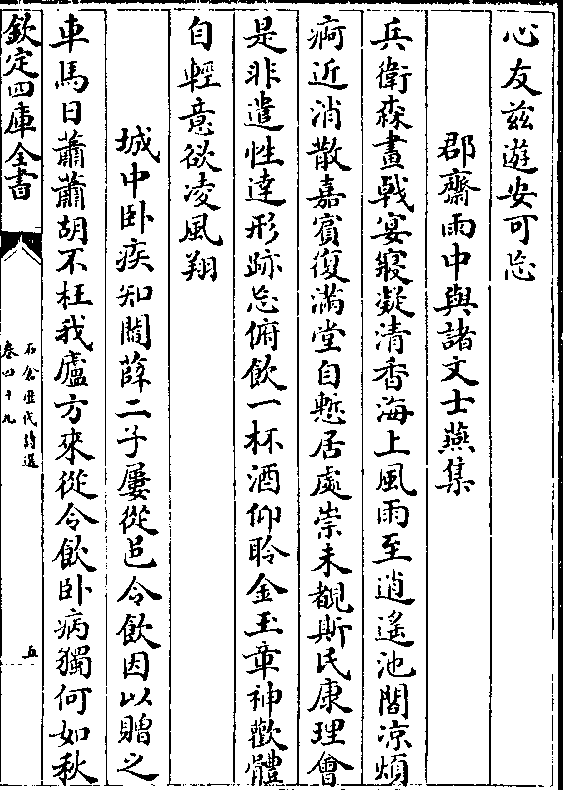 心友兹遊安可忘
郡齋雨中與諸文士燕集
兵衛森畫戟宴寢凝清香海上風雨至逍遥池閣凉煩
疴近消散嘉賓復滿堂自慙居處崇未覩斯民康理會
是非遣性達形跡忘俯飲一杯酒仰聆金玉章神歡體
自輕意欲凌風翔
城中卧疾知閻薛二子屢從邑令飲因以贈之
車馬日蕭蕭胡不枉我廬方來從令飲卧病獨何如秋
欽定四庫全書
石倉歷代詩選
卷四十九
五